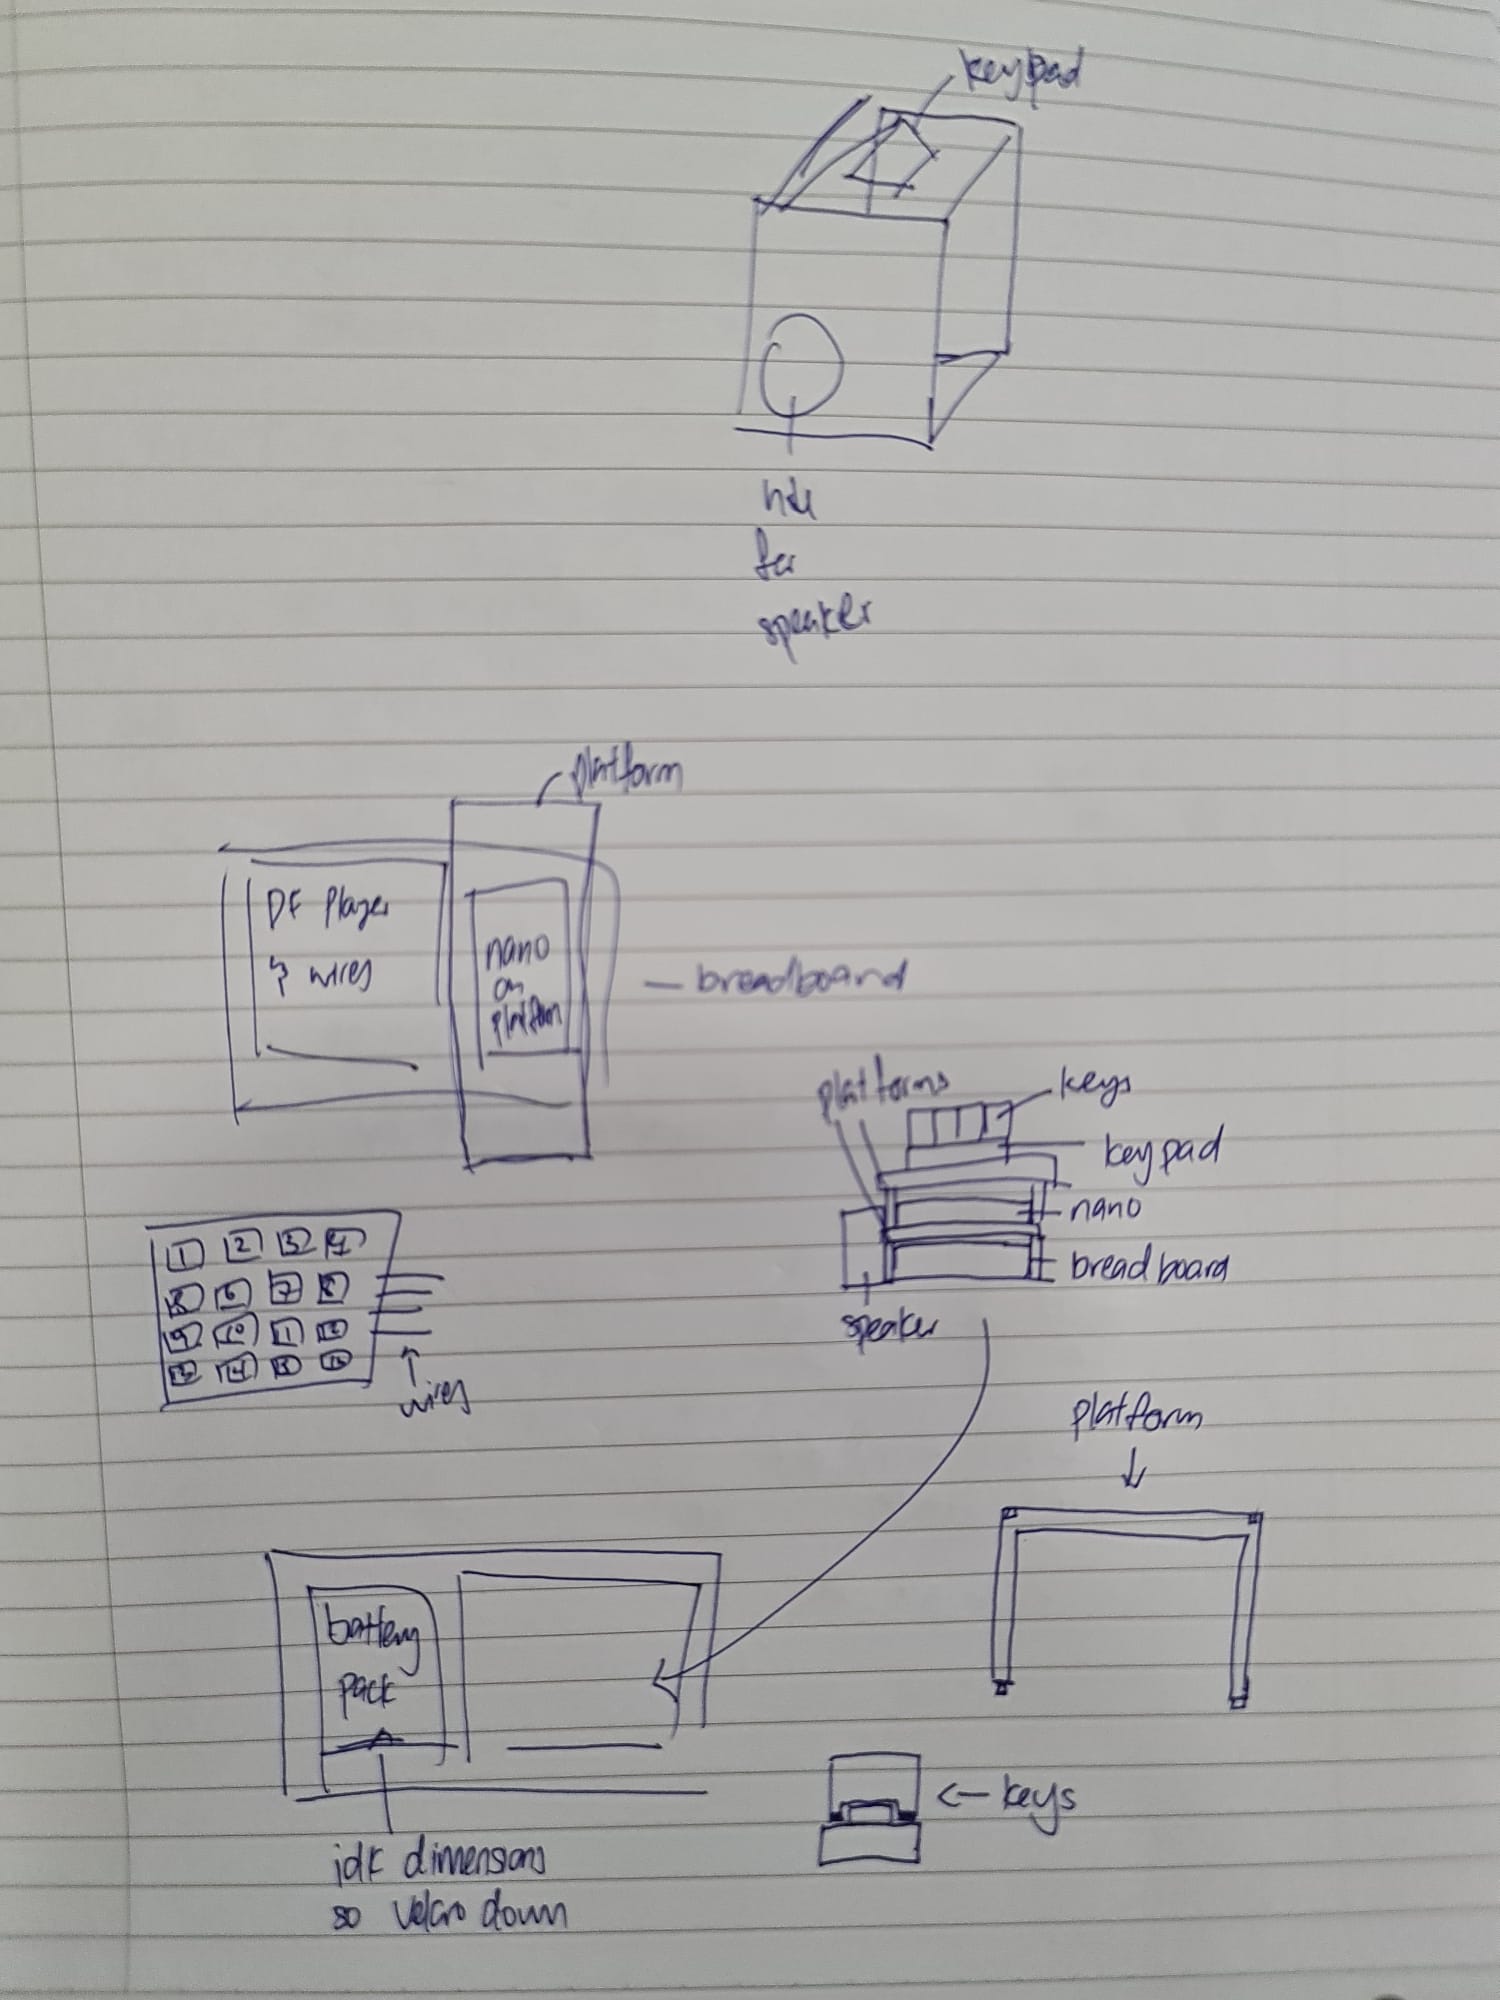 keypad
hole
for
speaker
platform
DF Player
& wires
nano
on
platform
breadboard
platforms
keys
keypad
nano
breadboard
speaker
1 2 3 4
5 6 7 8
9 10 11 12
13 14 15 16
wires
platform
battery
pack
keys
idk dimensions
so velcro down